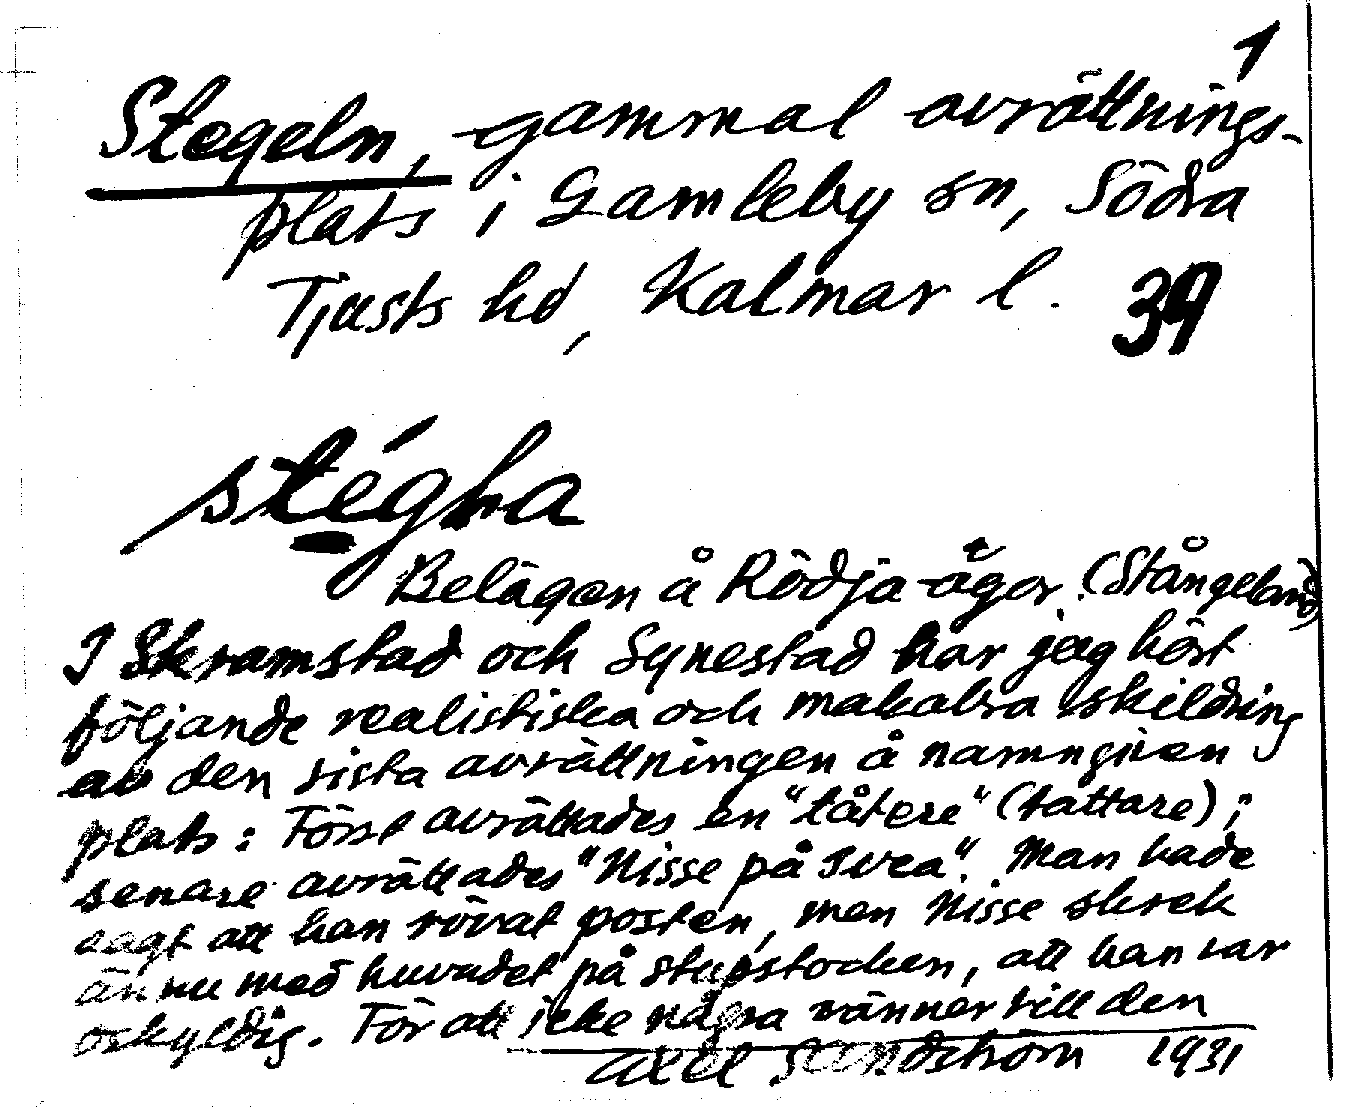 1
Stegeln, gammal avrättnings-
plats i Gamleby sn, Södra
Tjusts hd, Kalmar l. 39
stégha
Belägen å Rödja ägor. (Stångeland)
I Skramstad och Synestad har jag hört
följande realistiska och makabra skildring
av den sista avrättningen å namngiven
plats: Först avrättades en "tåtere" (tattare);
senare avrättades "Nisse på Svea". Man hade
sagt att han rövat posten, men Nisse skrek
ännu med huvudet på stupstocken, att han var
oskyldig. För att icke några vänner till den
Axel Sundström 1931